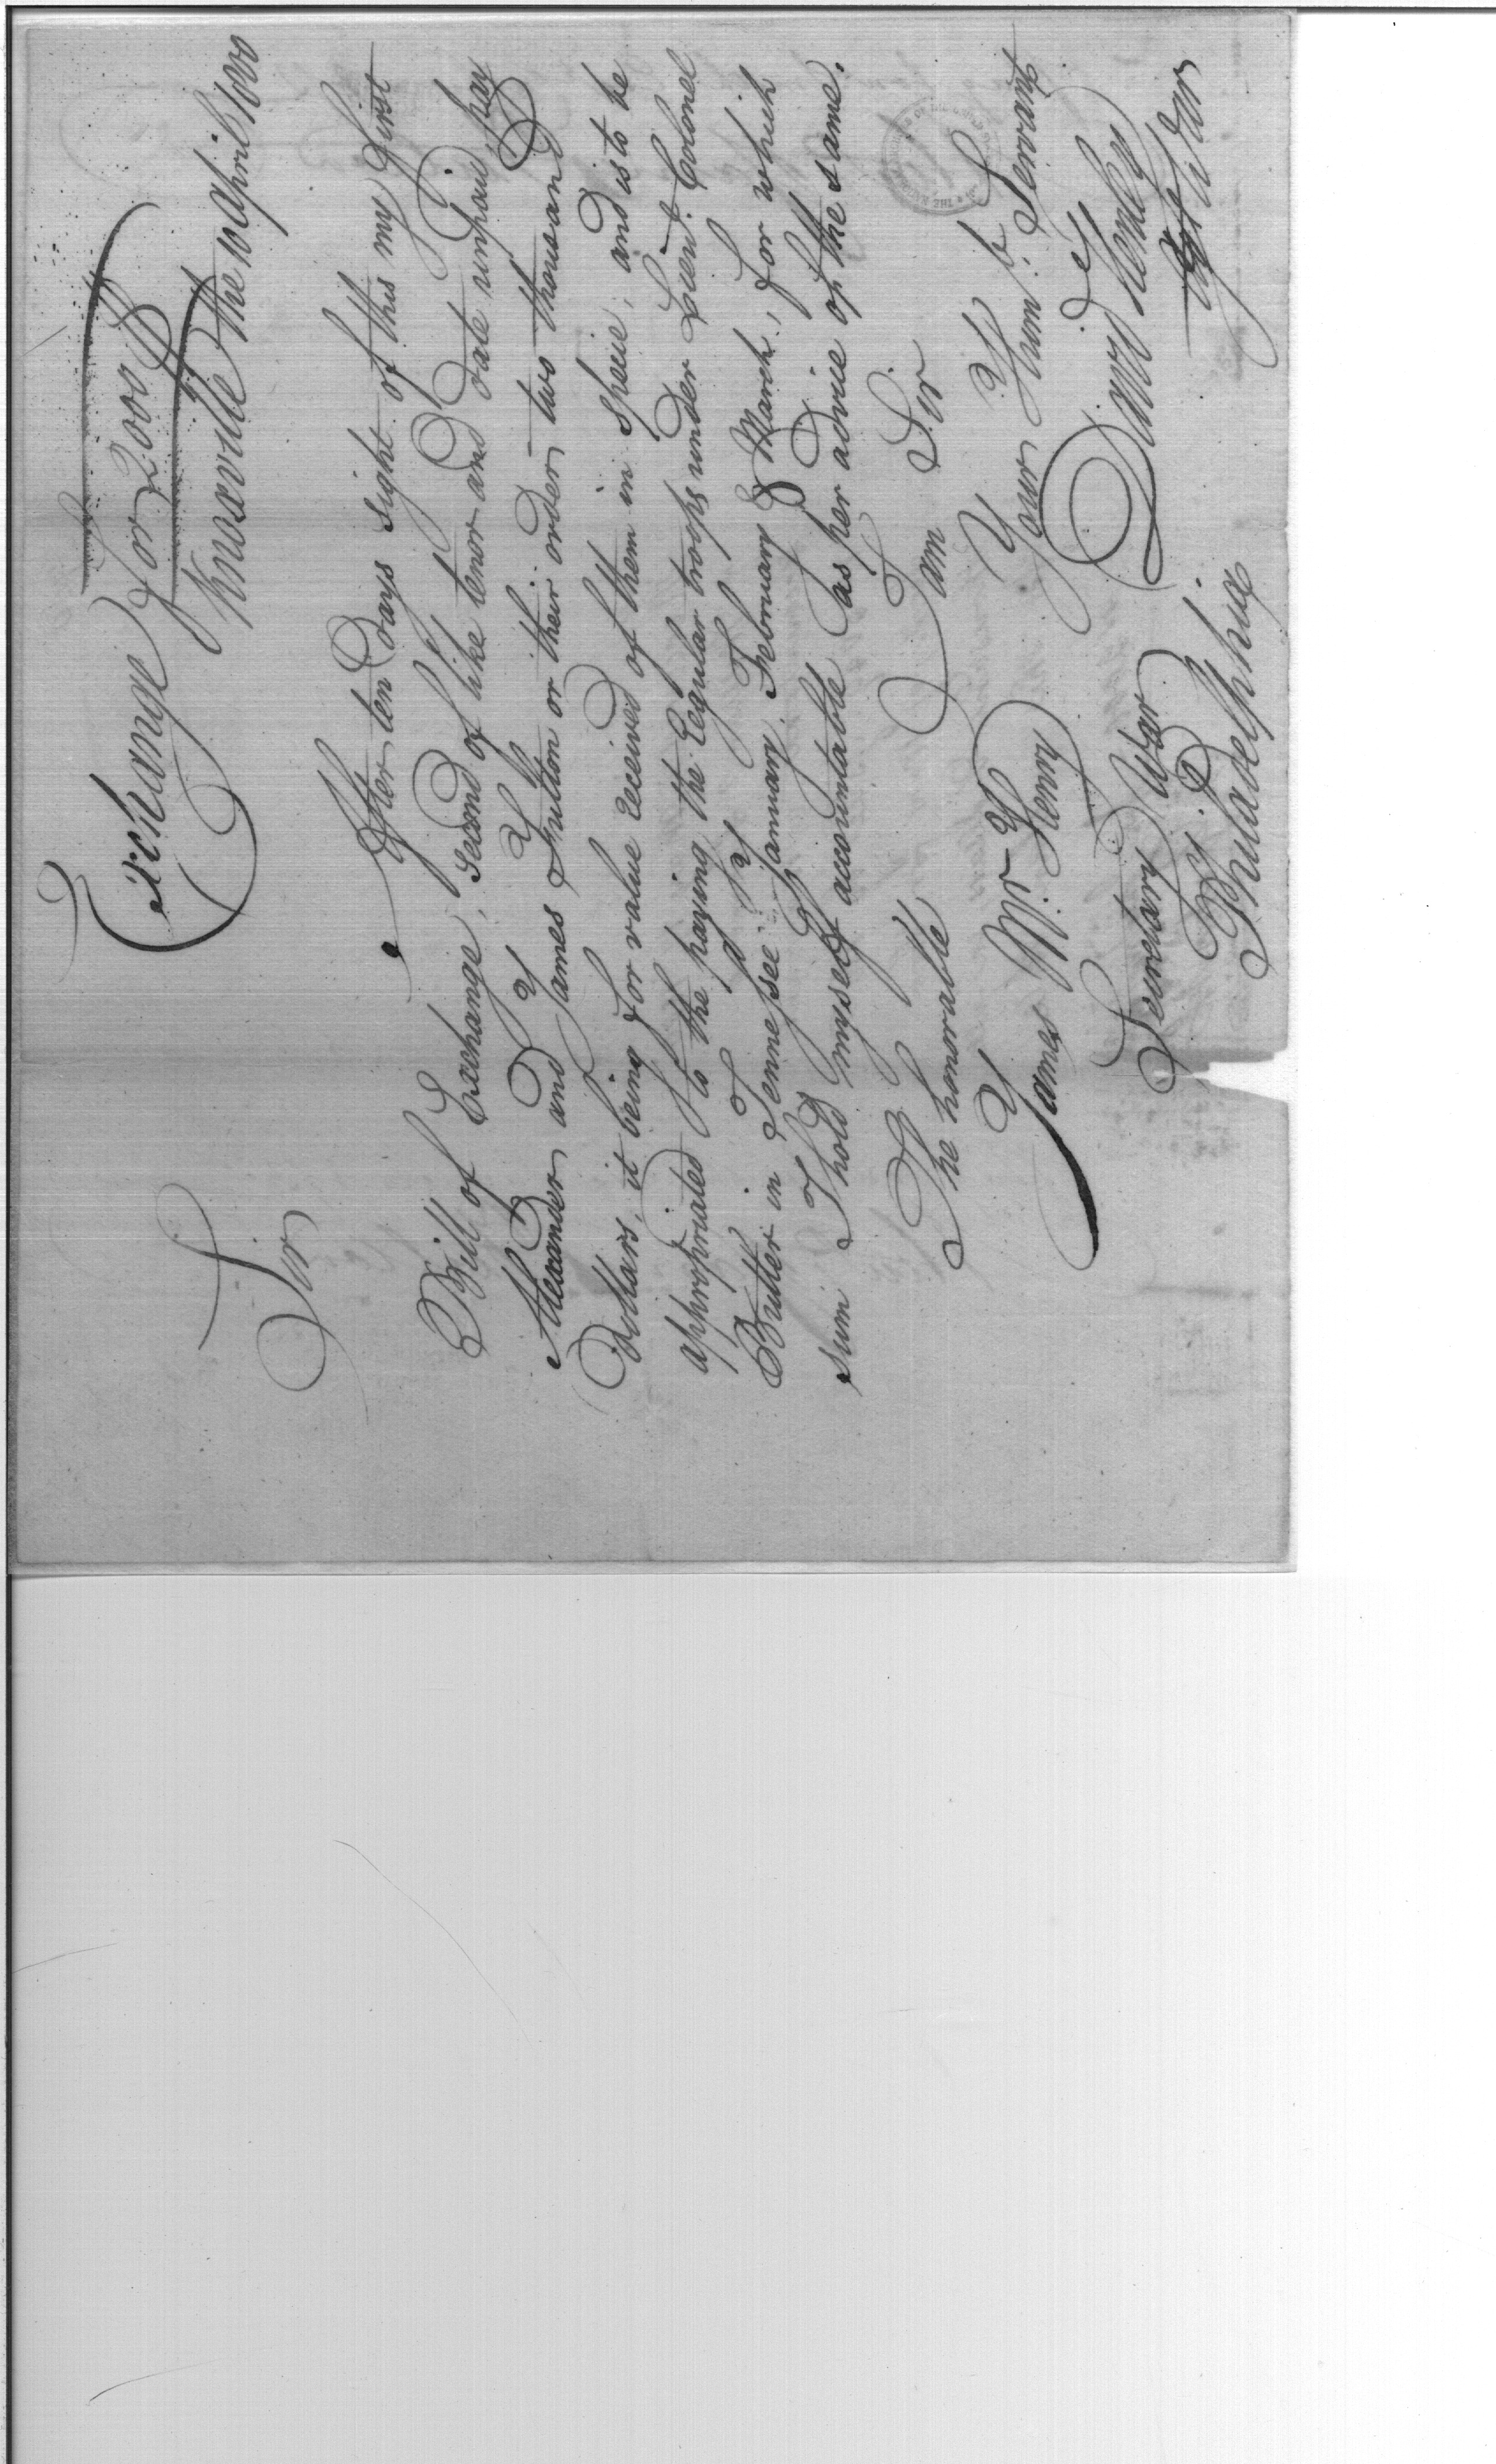 Exchange for 2000 $
Knoxville the 10 April 1800
Sir
After ten Days sight of this my first
Bill of Exchange, second of like tenor and date unpaid, pay
Alexander and James Fulton or their order, two thousand
Dollars, it being for value received of them in specie, and is to be
appropriated to the paying the regular troops under Lieut. Colonel
Butler in Tennessee January, February & March, for which
sum I hold myself accountable as per advice of the same.
I am Sir
The honorable
Your Humb. Servant
James Mc. Henry
David Henley
Secretary War
Agt W Dar
Philadelphia